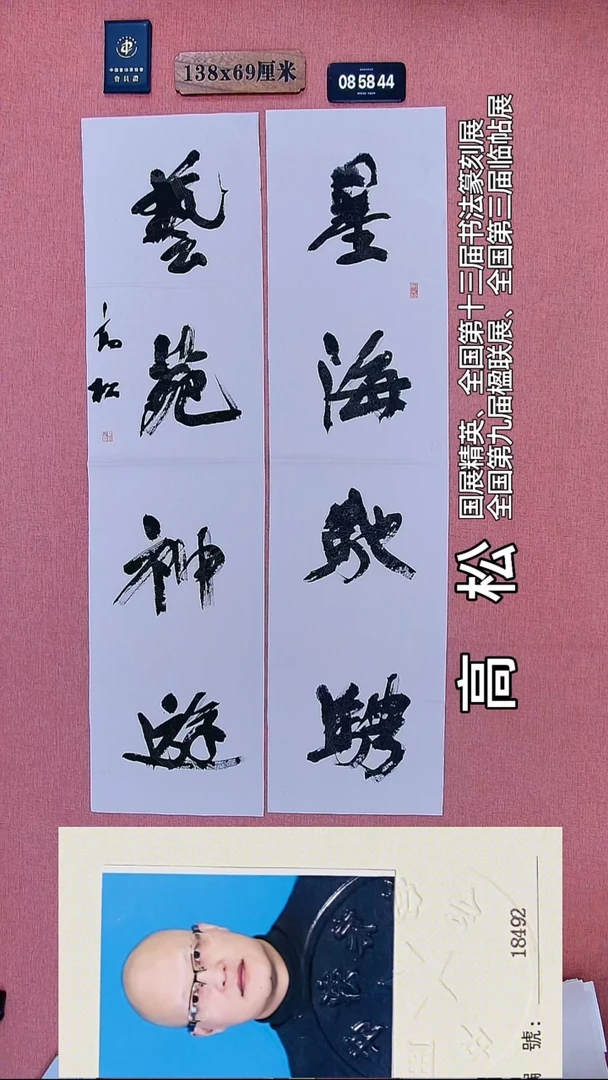 中国书法家协会
會員證
138x69厘米
08 58 44
墨海馳騁
藝苑神遊
高松
国展精英、全国第十三届书法篆刻展
全国第九届楹联展、全国第三届临帖展
高 松
號: 18492